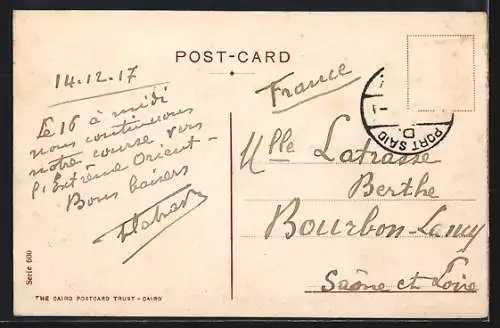 POST-CARD
14.12.17
Le 16 à midi
nous continuons
notre course vers
l'Extrême Orient -
Bons baisers
France
Mlle Latrasse
Berthe
Bourbon-Lancy
Saône et Loire
PORT SAID
D.
Serie 600
THE CAIRO POSTCARD TRUST - CAIRO